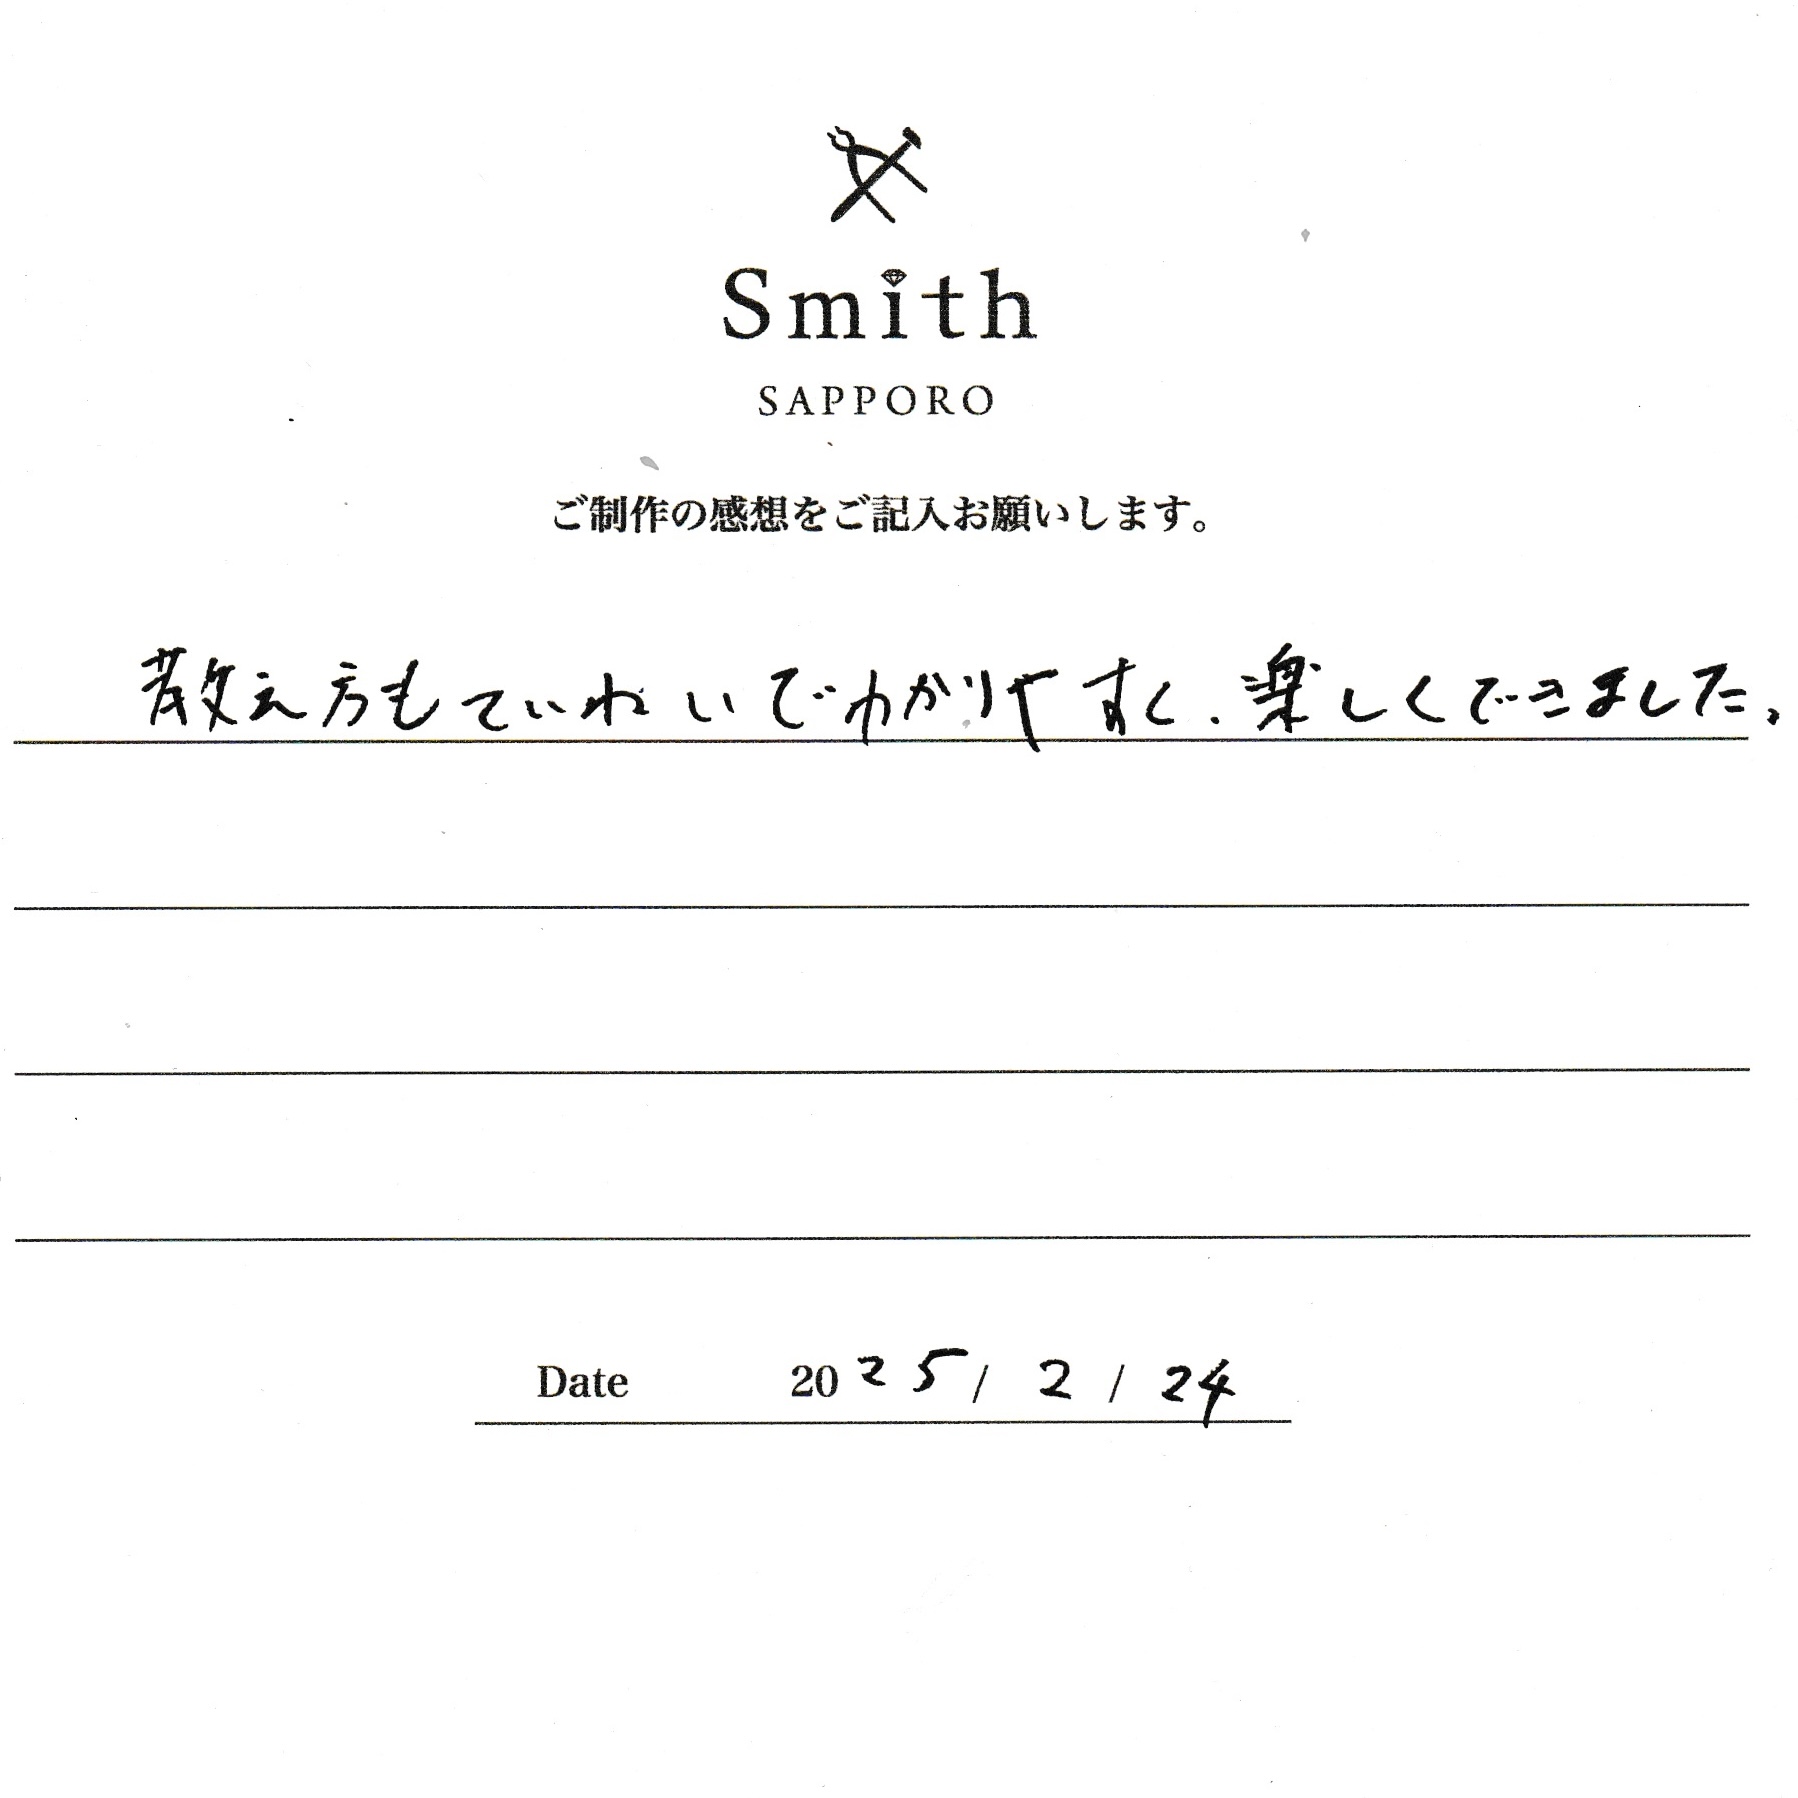 Smith
SAPPORO
ご制作の感想をご記入お願いします。
教え方もていねいでわかりやすく、楽しくできました。
Date 2025/2/24